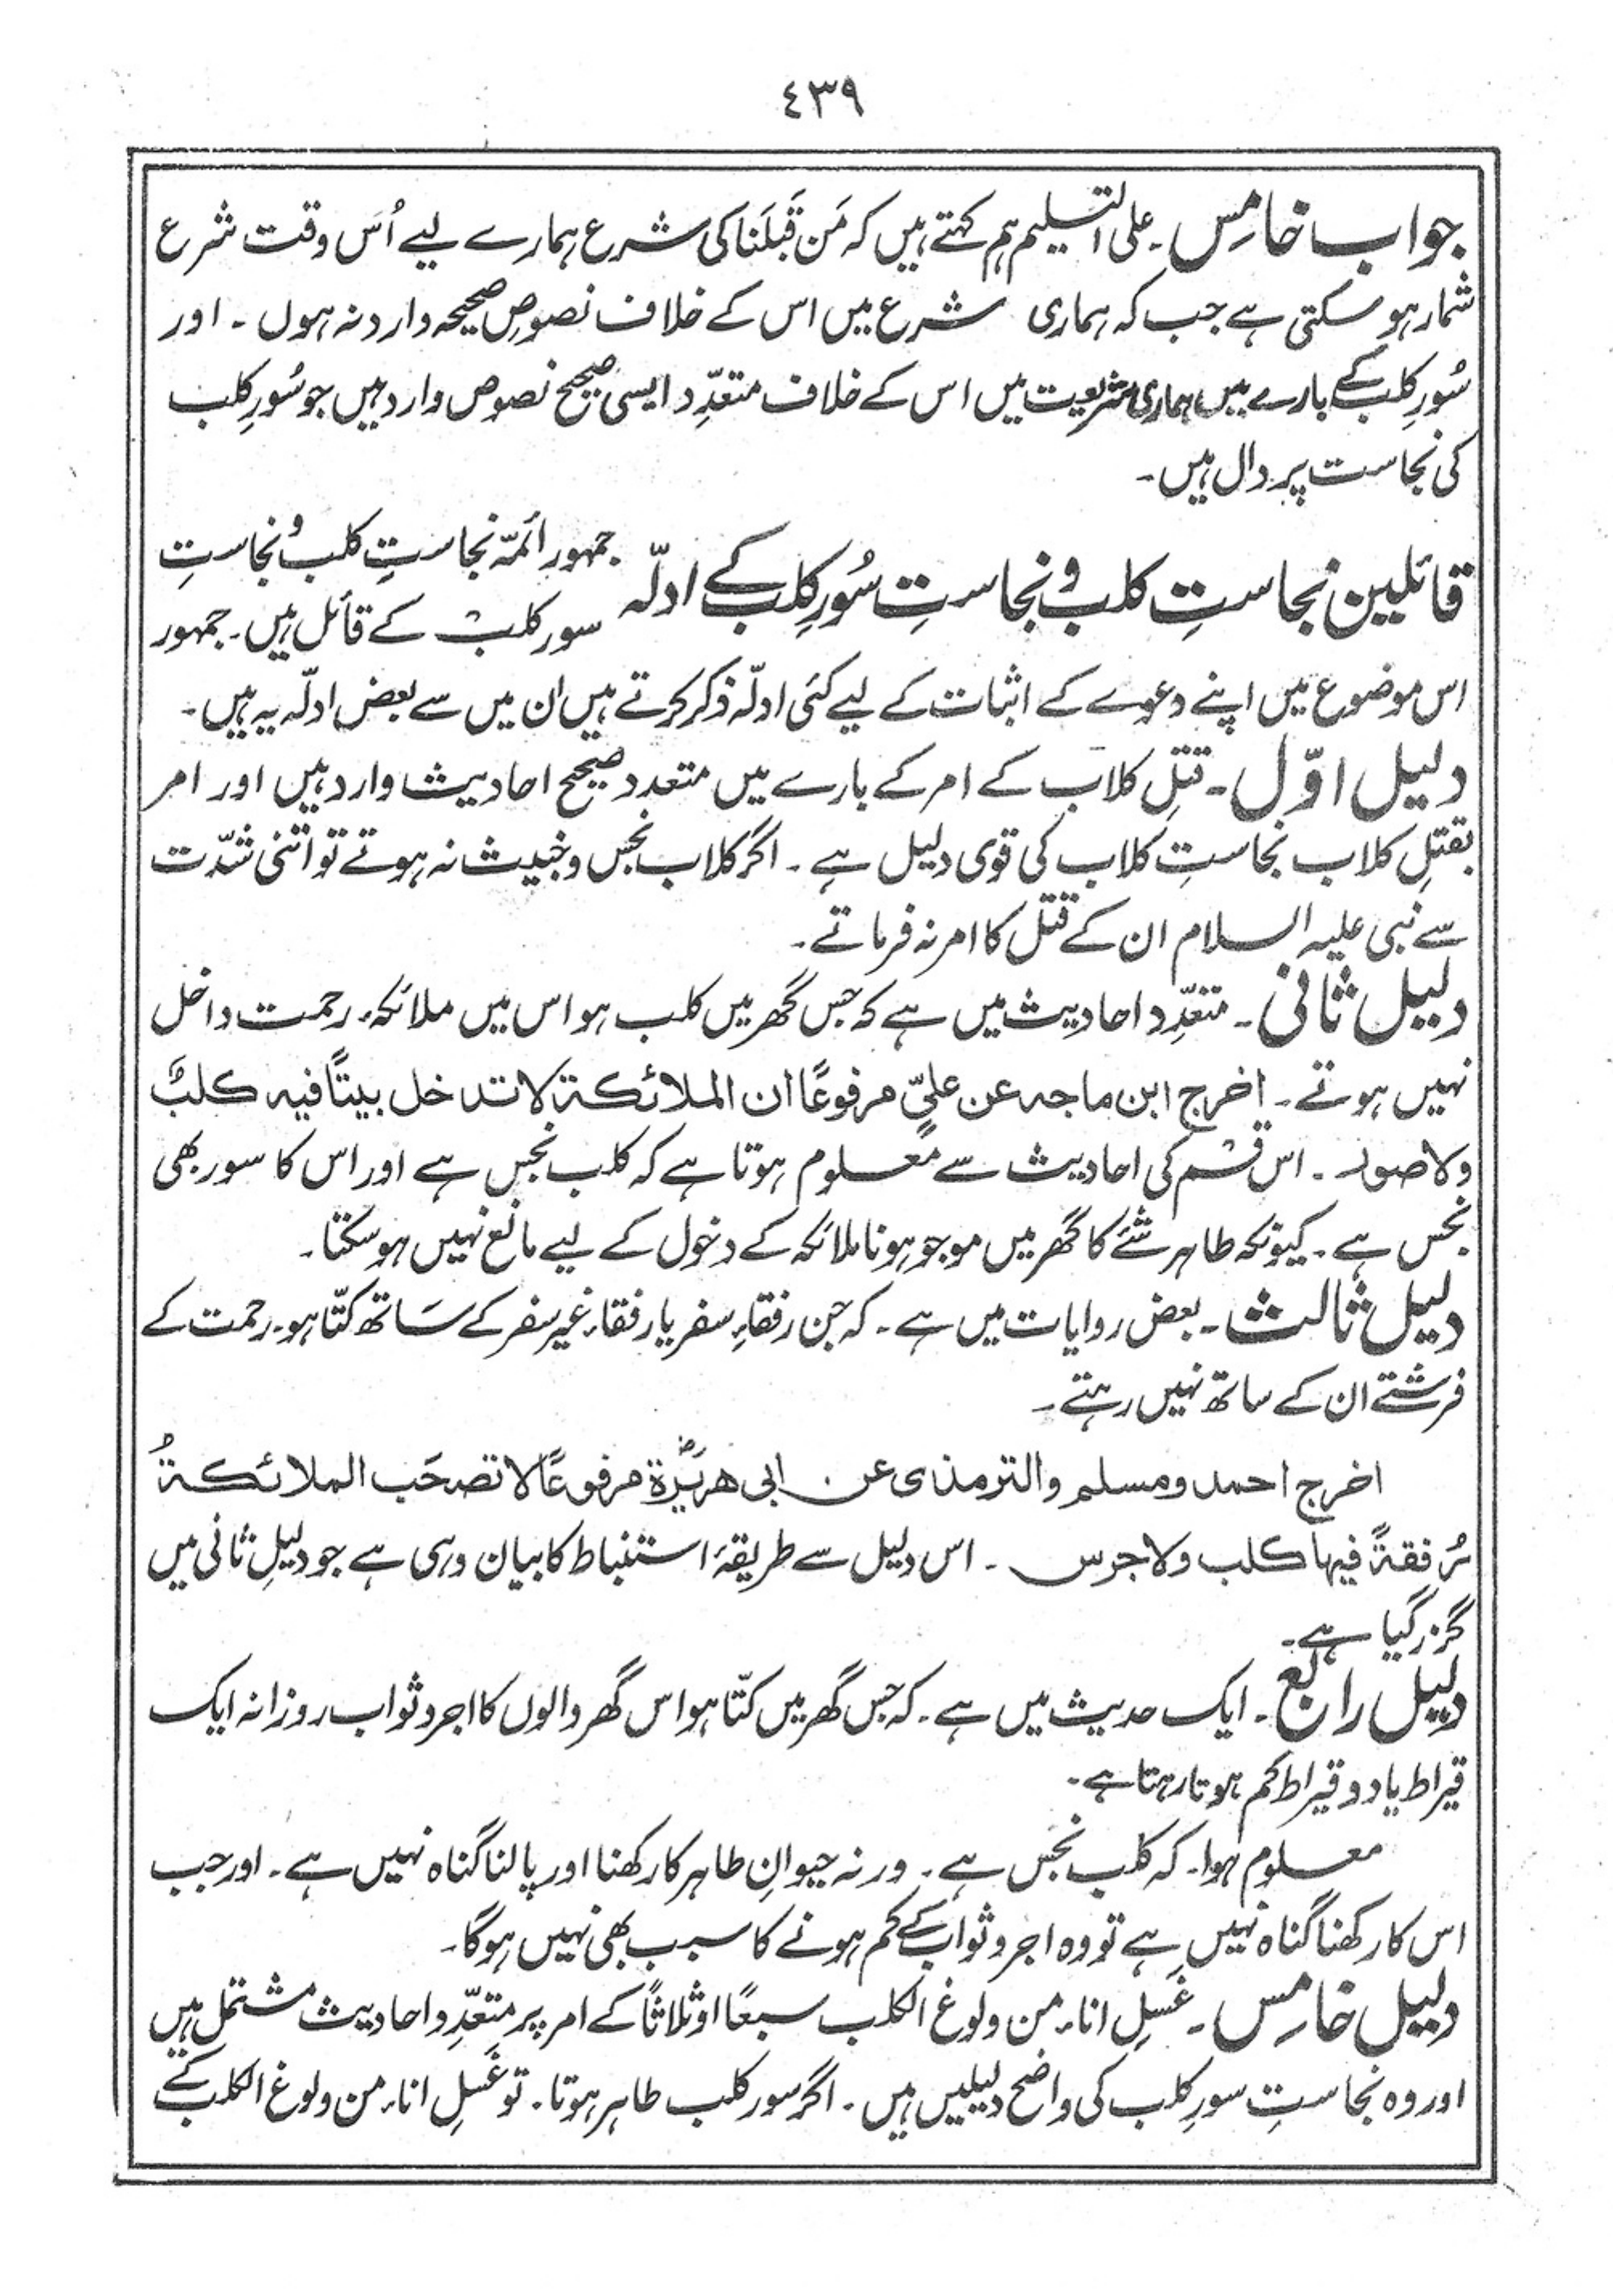 ٤٣٩
جواب خامِس۔ علی التسلیم ہم کہتے ہیں کہ مَن قَبلَنا کی شرع ہمارے لیے اُس وقت شرع
شمار ہو سکتی ہے جب کہ ہماری شرع میں اس کے خلاف نصوصِ صحیحہ وارد نہ ہوں۔ اور
سُورِ کلب کے بارے میں ہماری شریعت میں اس کے خلاف متعدّد ایسی صحیح نصوص وارد ہیں جو سُورِ کلب
کی نجاست پر دال ہیں۔
قائلین نجاستِ کلب و نجاستِ سُورِ کلب کے ادلّہ
جمہور ائمّہ نجاستِ کلب و نجاستِ
سور کلب کے قائل ہیں۔ جمہور
اس موضوع میں اپنے دعوے کے اثبات کے لیے کئی ادلّہ ذکر کرتے ہیں ان میں سے بعض ادلّہ یہ ہیں۔
دلیل اوّل۔ قتلِ کلاب کے امر کے بارے میں متعدد صحیح احادیث وارد ہیں اور امر
بقتلِ کلاب نجاستِ کلاب کی قوی دلیل ہے۔ اگر کلاب نجس و خبیث نہ ہوتے تو اتنی شدّت
سے نبی علیہ السلام ان کے قتل کا امر نہ فرماتے۔
دلیل ثانی۔ متعدّد احادیث میں ہے کہ جس گھر میں کلب ہو اس میں ملائکہ رحمت داخل
نہیں ہوتے۔ اخرج ابن ماجہ عن علیّ مرفوعًا ان الملائکۃ لا تدخل بیتًا فیہ کلبٌ
ولا صورۃ۔ اس قسم کی احادیث سے معلوم ہوتا ہے کہ کلب نجس ہے اور اس کا سور بھی
نجس ہے۔ کیونکہ طاہر شئے کا گھر میں موجو ہونا ملائکہ کے دخول کے لیے مانع نہیں ہوسکتا۔
دلیل ثالث۔ بعض روایات میں ہے۔ کہ جن رفقاءِ سفر یا رفقاء غیر سفر کے ساتھ کتّا ہو۔ رحمت کے
فرشتے ان کے ساتھ نہیں رہتے۔
اخرج احمد ومسلم والترمذی عن ابی ھریرۃ مرفوعًا لا تصحَب الملائکۃُ
رُفقۃً فیہا کلب ولا جرس۔ اس دلیل سے طریقۂ استنباط کا بیان وہی ہے جو دلیلِ ثانی میں
گزر گیا ہے۔
دلیل رابع۔ ایک حدیث میں ہے۔ کہ جس گھر میں کتّا ہو اس گھر والوں کا اجر و ثواب روزانہ ایک
قیراط یا دو قیراط کم ہوتا رہتا ہے۔
معلوم ہوا۔ کہ کلب نجس ہے۔ ورنہ حیوانِ طاہر کا رکھنا اور پالنا گناہ نہیں ہے۔ اور جب
اس کا رکھنا گناہ نہیں ہے تو وہ اجر و ثواب کے کم ہونے کا سبب بھی نہیں ہوگا۔
دلیل خامِس۔ غَسلِ اناء من ولوغ الکلب سبعًا او ثلاثًا کے امر پر متعدّد احادیث مشتمل ہیں
اور وہ نجاستِ سورِ کلب کی واضح دلیلیں ہیں۔ اگر سور کلب طاہر ہوتا۔ تو غَسلِ اناء من ولوغ الکلب کے